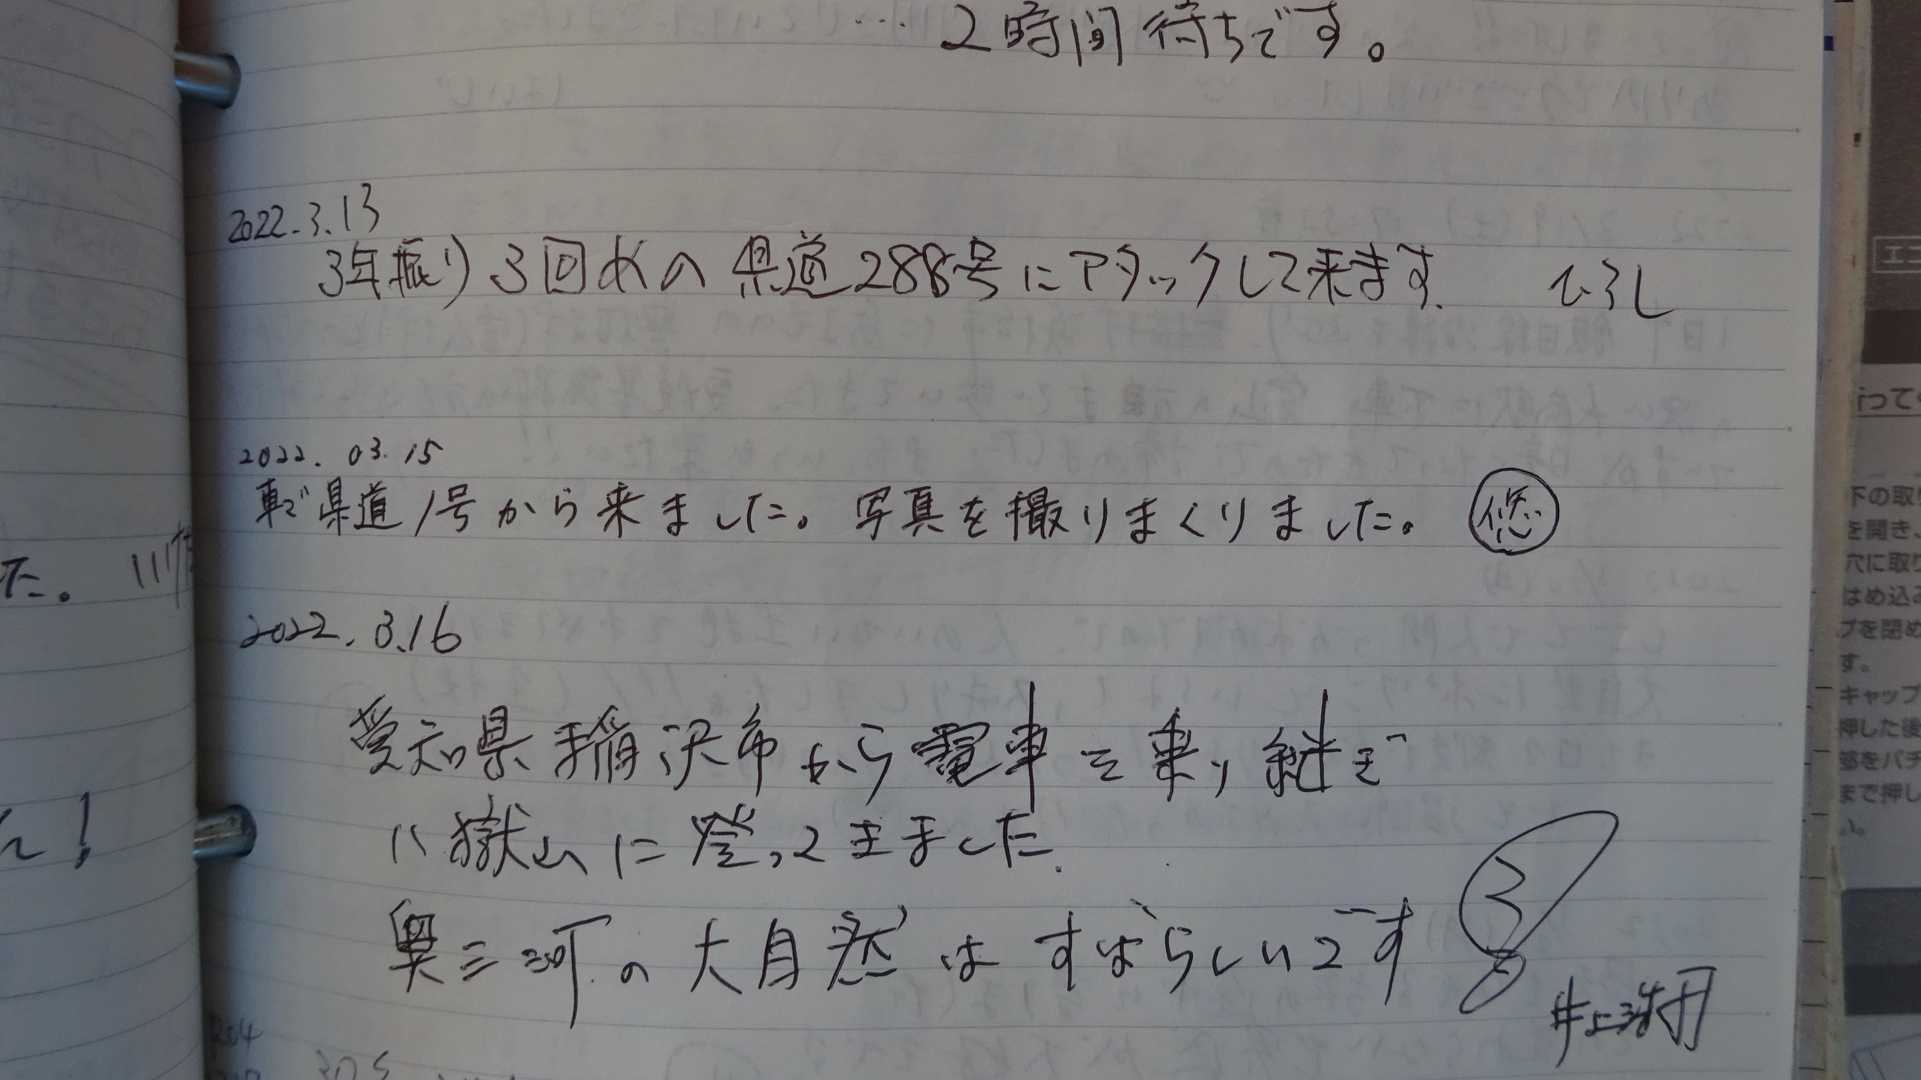 2時間待ちです。
2022.3.13
3年振り3回めの県道288号にアタックして来ます. ひろし
2022.03.15
車で県道1号から来ました。写真を撮りまくりました。 悠
2022.3.16
愛知県稲沢市から電車を乗り継ぎ
八嶽山に登って来ました.
奥三河の大自然はすばらしいです
井上
た。
ん!
エニ
行って
下の取
を開き、
穴に取り
はめ込み
プを閉め
す。
キャップ
押した後
部をパチ
まで押し
い。